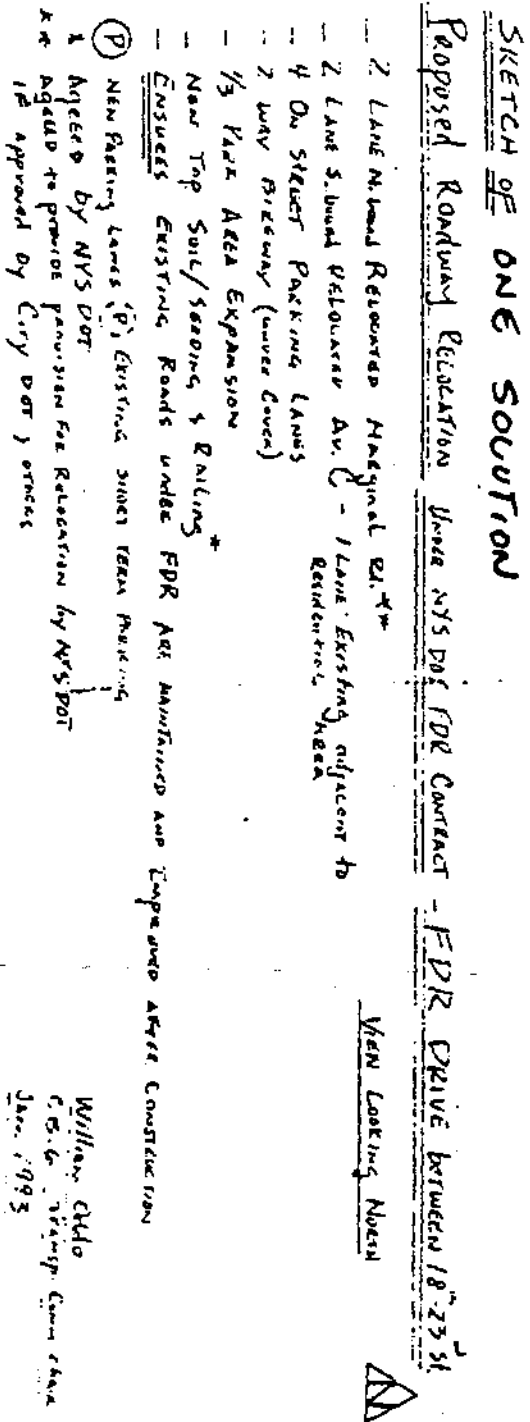 SKETCH OF ONE SOLUTION
PROPOSED ROADWAY RELOCATION UNDER NYS DOT FDR CONTRACT - FDR DRIVE BETWEEN 18th-23rd St.
VIEW LOOKING NORTH
-- 2 LANE N. bound RELOCATED MARGINAL Rd. **
- 2 LANE S. bound RELOCATED AV. C - 1 LANE EXISTING adjacent to
RESIDENTIAL AREA
-- 4 ON STREET PARKING LANES
-- 2 WAY BIKEWAY (UNDER COVER)
- 1/3 PARK AREA EXPANSION
- NEW TOP SOIL/SEEDING & RAILING *
- ENSURES EXISTING ROADS UNDER FDR ARE MAINTAINED AND IMPROVED AFTER CONSTRUCTION
(P) NEW PARKING LANES (P) EXISTING SHORT TERM PARKING
* AGREED by NYS DOT
** AGREED to PROVIDE PROVISION FOR RELOCATION by NYS DOT
IF APPROVED by CITY DOT, OTHERS
William
C.B.6 TRANSP. Comm Chair
Jan. 1993